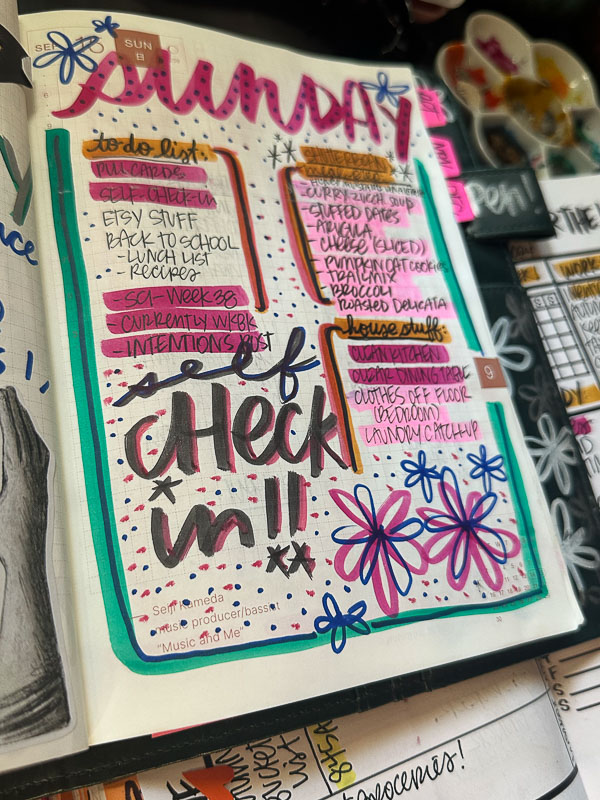 SUN
8
SUNDAY
to do list:
PULL CARDS
SELF-CHECK-IN
ETSY STUFF
BACK TO SCHOOL
- LUNCH LIST
- RECIPES
- SCI - WEEK 38
- CURRENTLY WKBK
- INTENTIONS POST
- CURRY ZUCCH SOUP
- STUFFED DATES
- ARUGULA
- CHEESE (SLICED)
- PUMPKIN OAT COOKIES
- TRAIL MIX
- BROCCOLI
ROASTED DELICATA
house stuff:
CLEAN KITCHEN
CLEAR DINING TABLE
CLOTHES OFF FLOOR
(BEDROOM)
LAUNDRY CATCH-UP
self
CHECK
in!!
9
Seiji Kameda
music producer/bassist
"Music and Me"
Pen!
WORK
BUCKET
LIST
groceries!